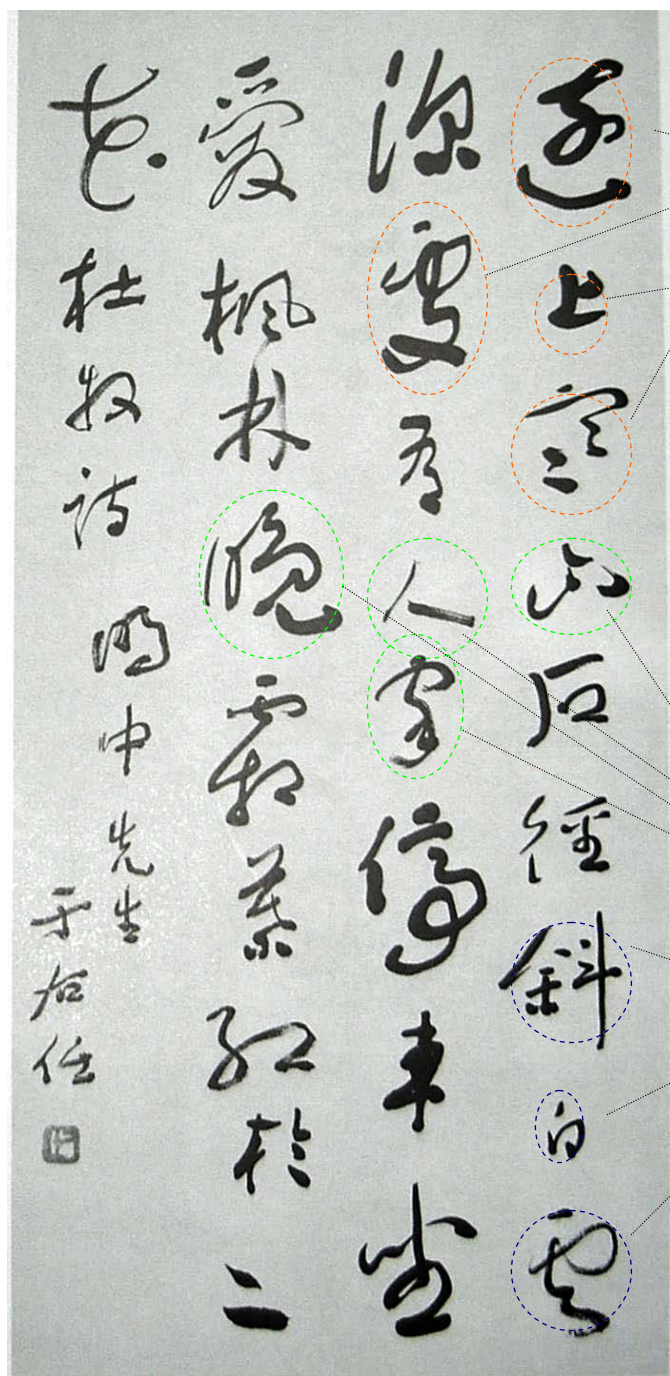 遠上寒山石徑斜白雲
深處有人家停車坐
愛楓林晚霜葉紅於二
花杜牧詩
中先生
于右任